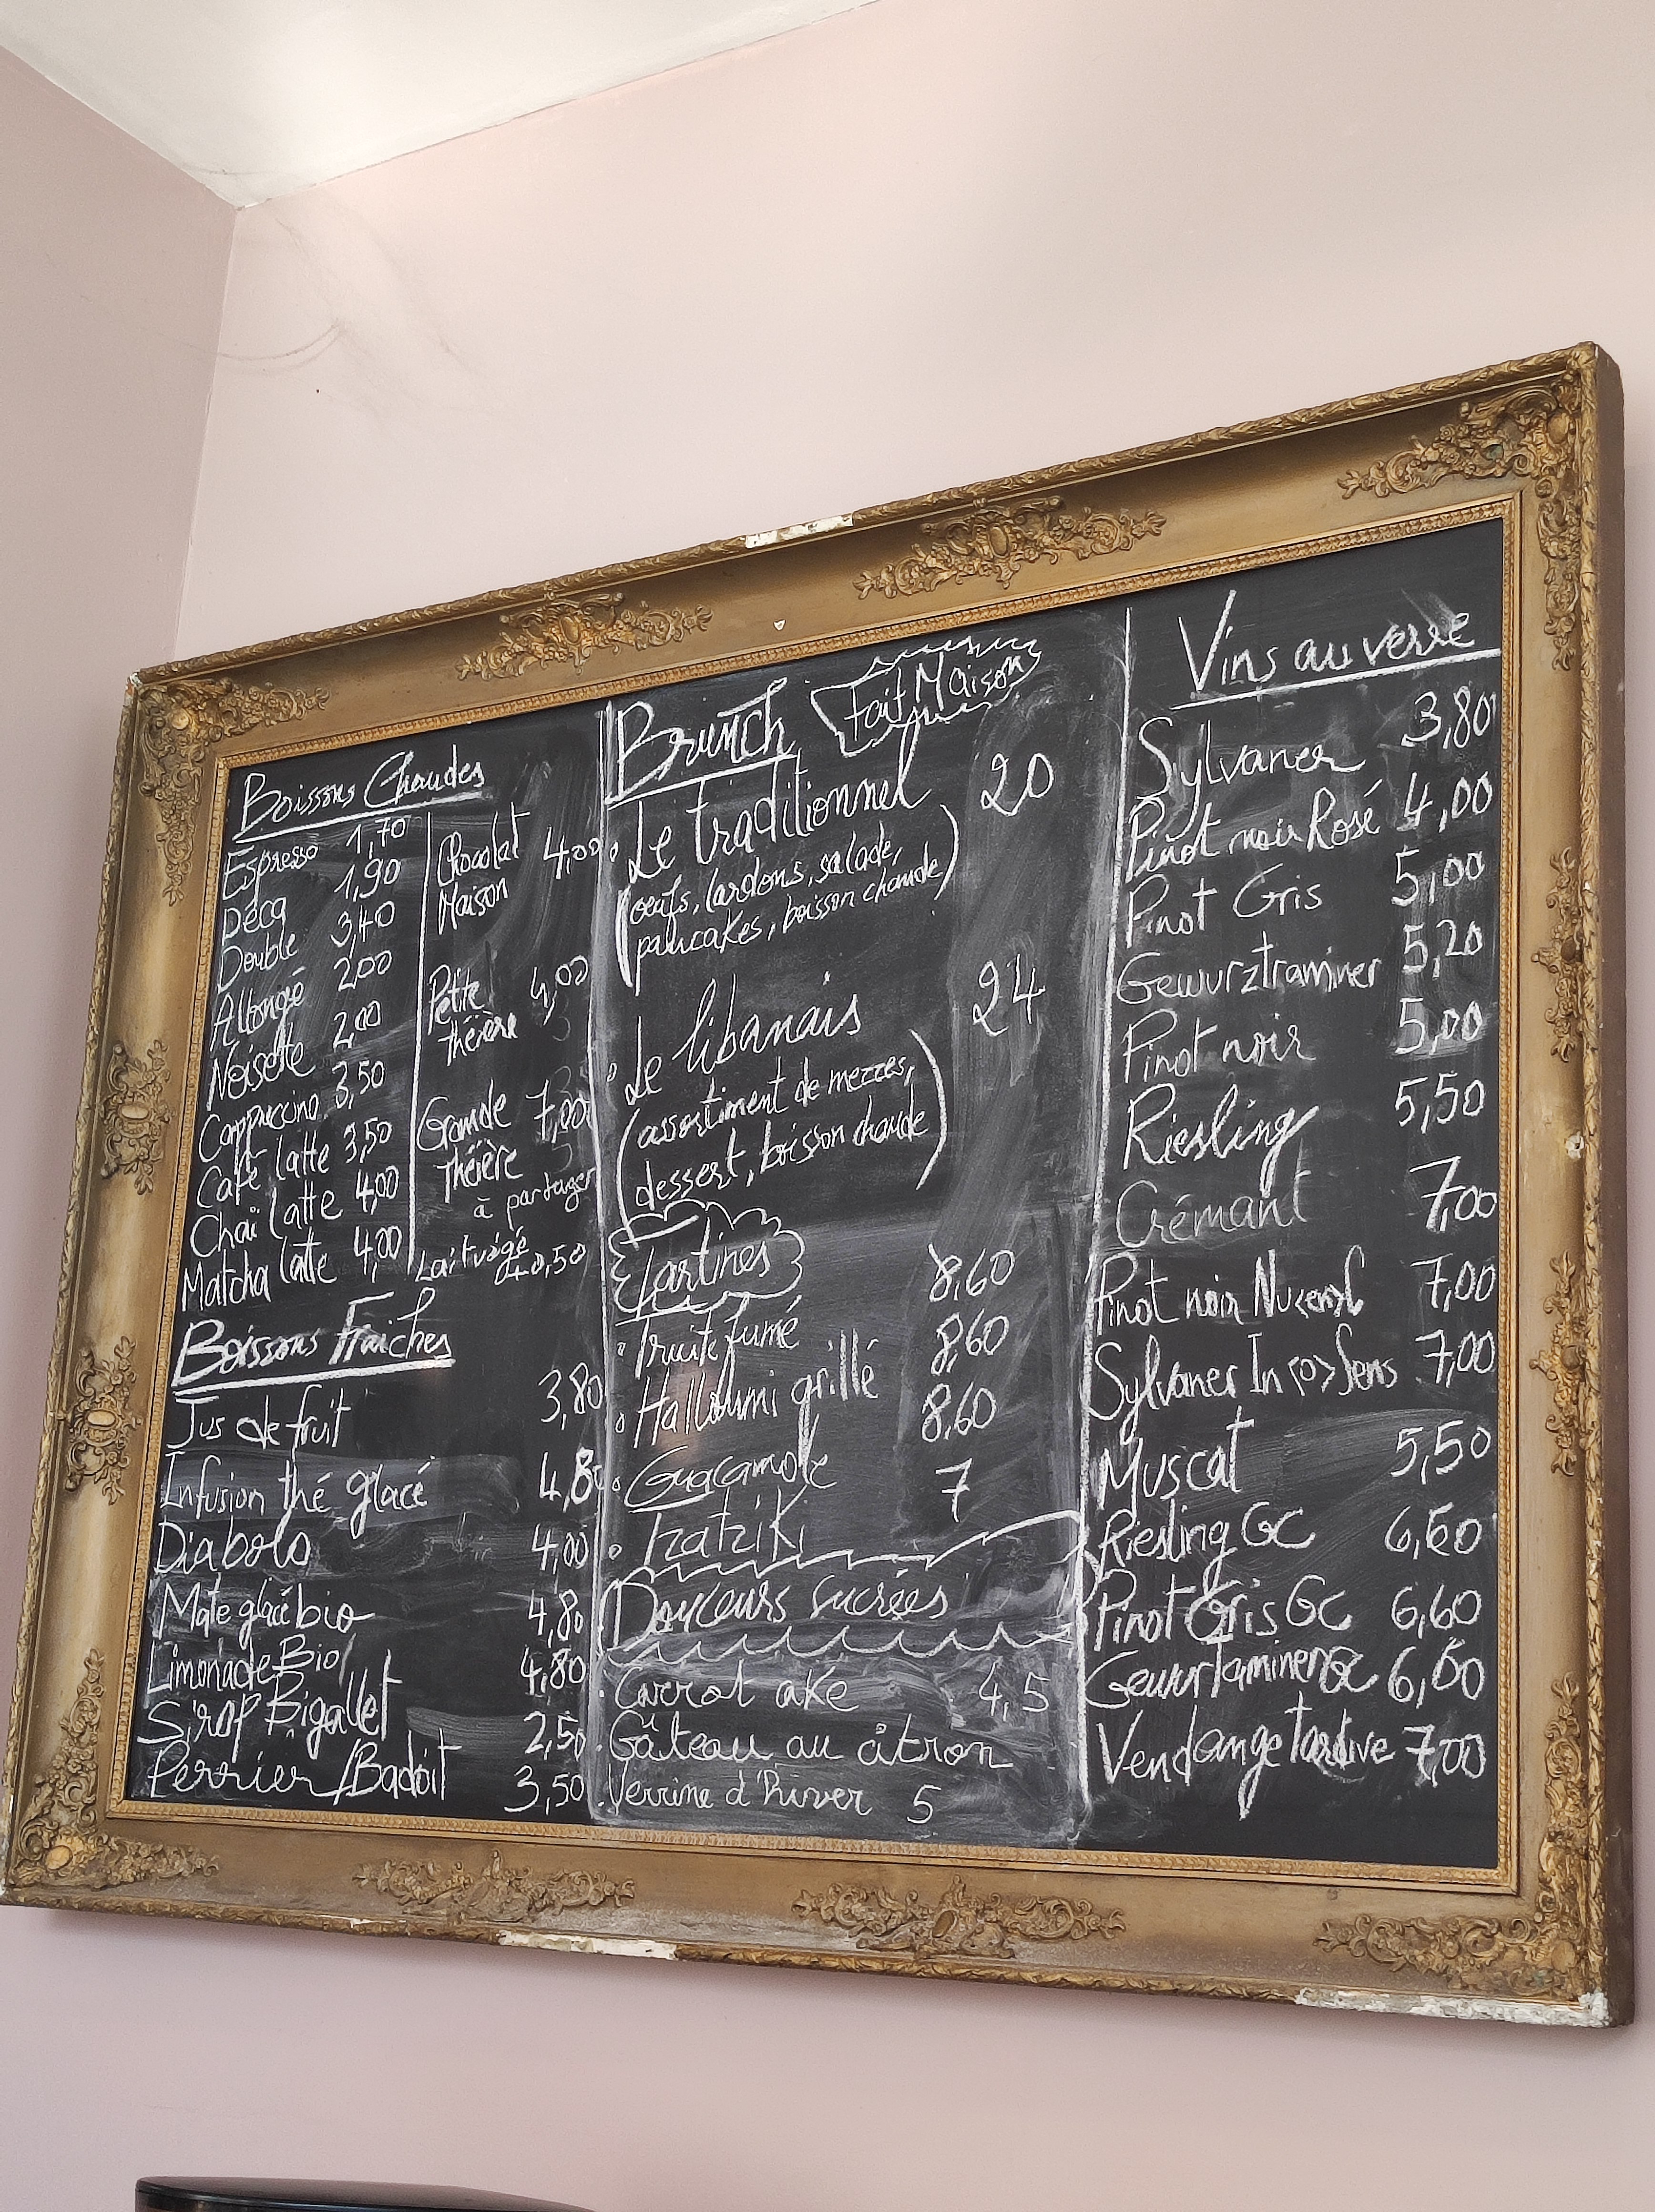 Boissons Chaudes
Espresso 1,70
Déca 1,90
Double 3,40
Allongé 2,00
Noisette 2,00
Cappuccino 3,50
Café latte 3,50
Chaï latte 4,00
Matcha latte 4,00
Chocolat 4,00
Maison
Petite 4,00
Théière
Grande 7,00
Théière
à partager
Lait végé
+0,50
Boissons Fraiches
Jus de fruit 3,80
Infusion thé glacé 4,80
Diabolo 4,00
Mate glacé bio 4,80
Limonade Bio 4,80
Sirop Bigallet 2,50
Perrier/Badoit 3,50
Brunch Fait Maison
Le traditionnel 20
(oeufs, lardons, salade,
pancakes, boisson chaude)
Le libanais 24
(assortiment de mezzes,
dessert, boisson chaude)
Tartines
Truite fumé 8,60
Halloumi grillé 8,60
Guacamole 8,60
Tzatziki 7
Douceurs sucrées
Carrot aké 4,5
Gâteau au citron
Verrine d'hiver 5
Vins au verre
Sylvaner 3,80
Pinot noir Rosé 4,00
Pinot Gris 5,00
Gewurztraminer 5,20
Pinot noir 5,00
Riesling 5,50
Crémant 7,00
Pinot noir 7,00
Sylvaner 7,00
Muscat 5,50
Riesling GC 6,60
Pinot Gris GC 6,60
Gewurtaminer GC 6,60
Vendange tardive 7,00